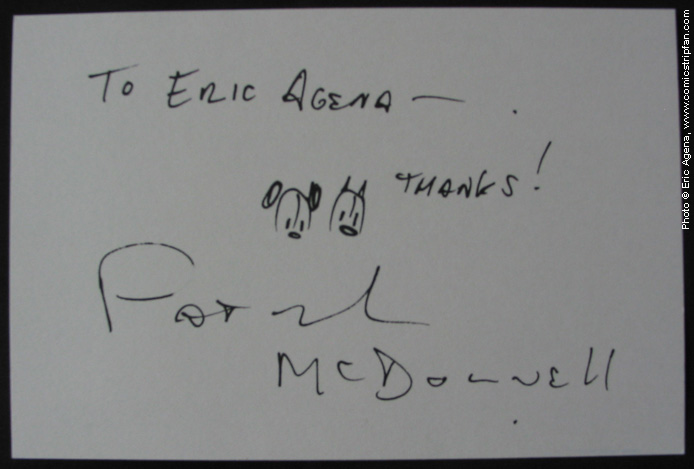 To Eric Agena —
Thanks!
Patrick
McDonnell
Photo © Eric Agena, www.comicstripfan.com